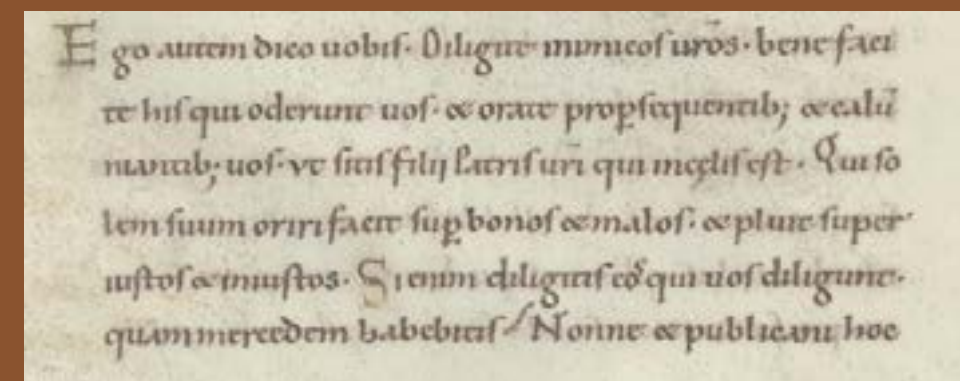 Ego autem dico uobis. Diligite inimicos ur̄os. bene faci
te his qui oderunt uos. & orate pro p̱sequentib; & calū
niantib; uos. vt sitis filij Patris uri̅ qui in cęlis est. Qui so
lem suum oriri facit sup̱ bonos & malos. & pluit super
iustos & iniustos. Si enim diligitis eos qui uos diligunt.
quam mercedem habebitis Nonne & publicani hoc